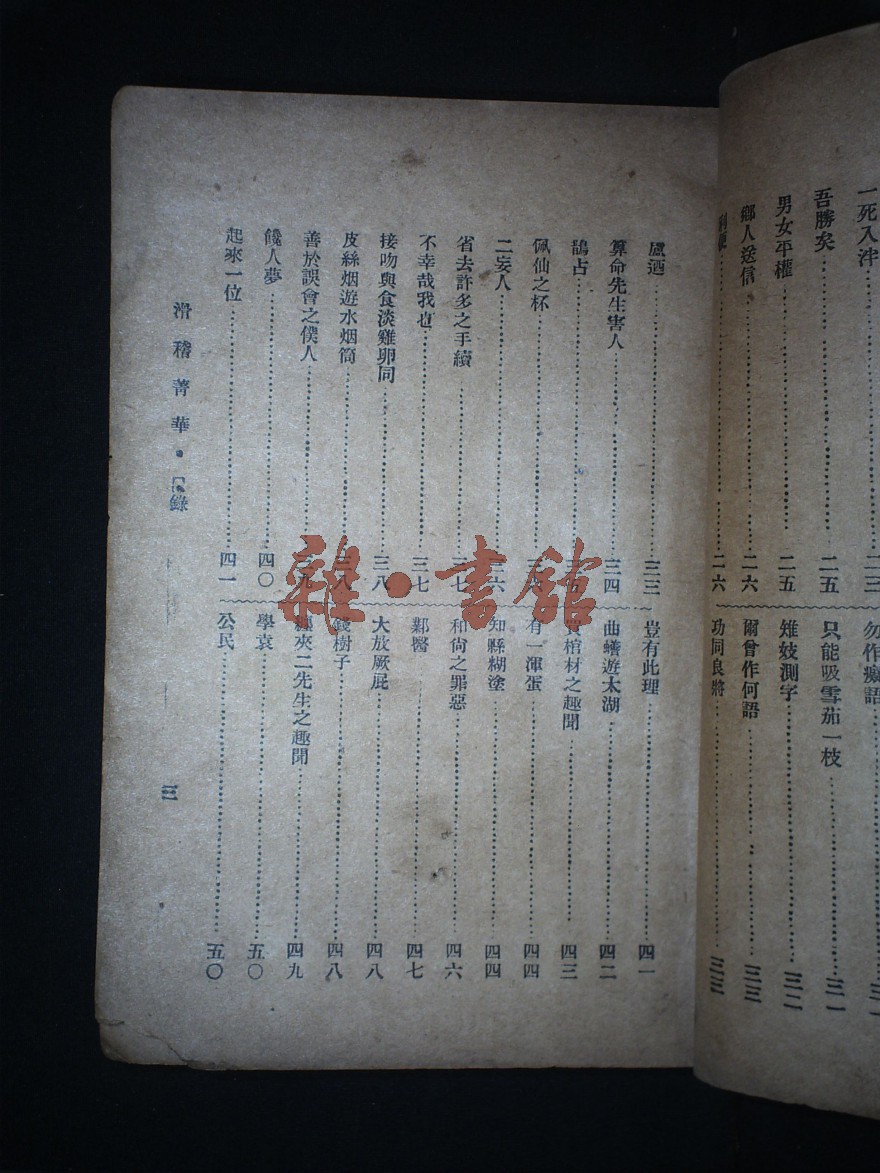 一死入泮……二三
吾勝矣……二五
男女平權……二五
鄉人送信……二六
利便……二六
勿作癡語……三一
只能吸雪茄一枝……三一
雉妓測字……三二
爾曾作何語……三三
功同良將……三三
虛迺……三三
算命先生害人……三四
鵲占……三五
佩仙之杯……三六
二妄人……三六
省去許多之手續……三七
不幸哉我也……三七
接吻與食淡雞卵同……三八
皮絲烟遊水烟筒……三八
善於誤會之僕人……三九
饞人夢……四〇
起來一位……四一
豈有此理……四一
曲蟮遊太湖……四二
買棺材之趣聞……四三
有一渾蛋……四四
知縣糊塗……四四
和尚之罪惡……四六
鄰醫……四七
大放厥屁……四八
錢樹子……四八
纏夾二先生之趣聞……四九
學袁……五〇
公民……五〇
滑稽菁華・目錄
三
雜・書館